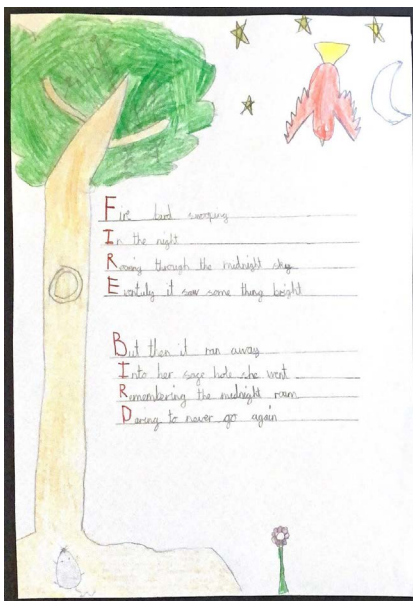 Fire bird swooping
In the night
Roaming through the midnight sky
Eventuly it saw some thing bright
But then it ran away
Into her sage hole she went
Remembering the midnight roam
Daring to never go again